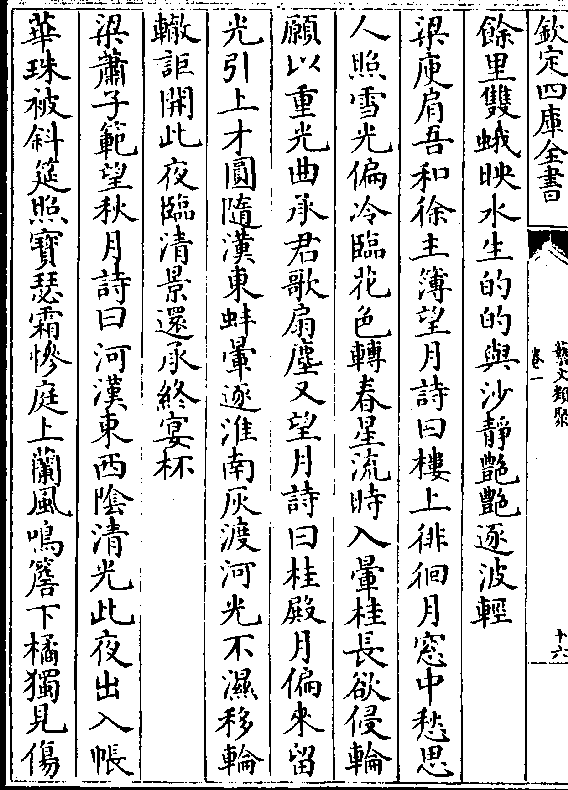 欽定四庫全書
藝文類聚
卷一
十六
餘里雙蛾映水生的的與沙靜艷艷逐波輕
梁庾肩吾和徐主簿望月詩曰樓上徘徊月窓中愁思
人照雪光偏冷臨花色轉春星流時入暈桂長欲侵輪
願以重光曲承君歌扇塵又望月詩曰桂殿月偏來留
光引上才圓隨漢東蚌暈逐淮南灰渡河光不濕移輪
轍詎開此夜臨清景還承終宴杯
梁蕭子範望秋月詩曰河漢東西陰清光此夜出入帳
華珠被斜筵照寶瑟霜慘庭上蘭風鳴簷下橘獨見傷